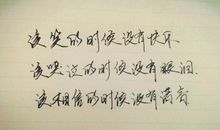 该笑的时候没有快乐
该哭泣的时候没有眼泪
该相信的时候没有诺言